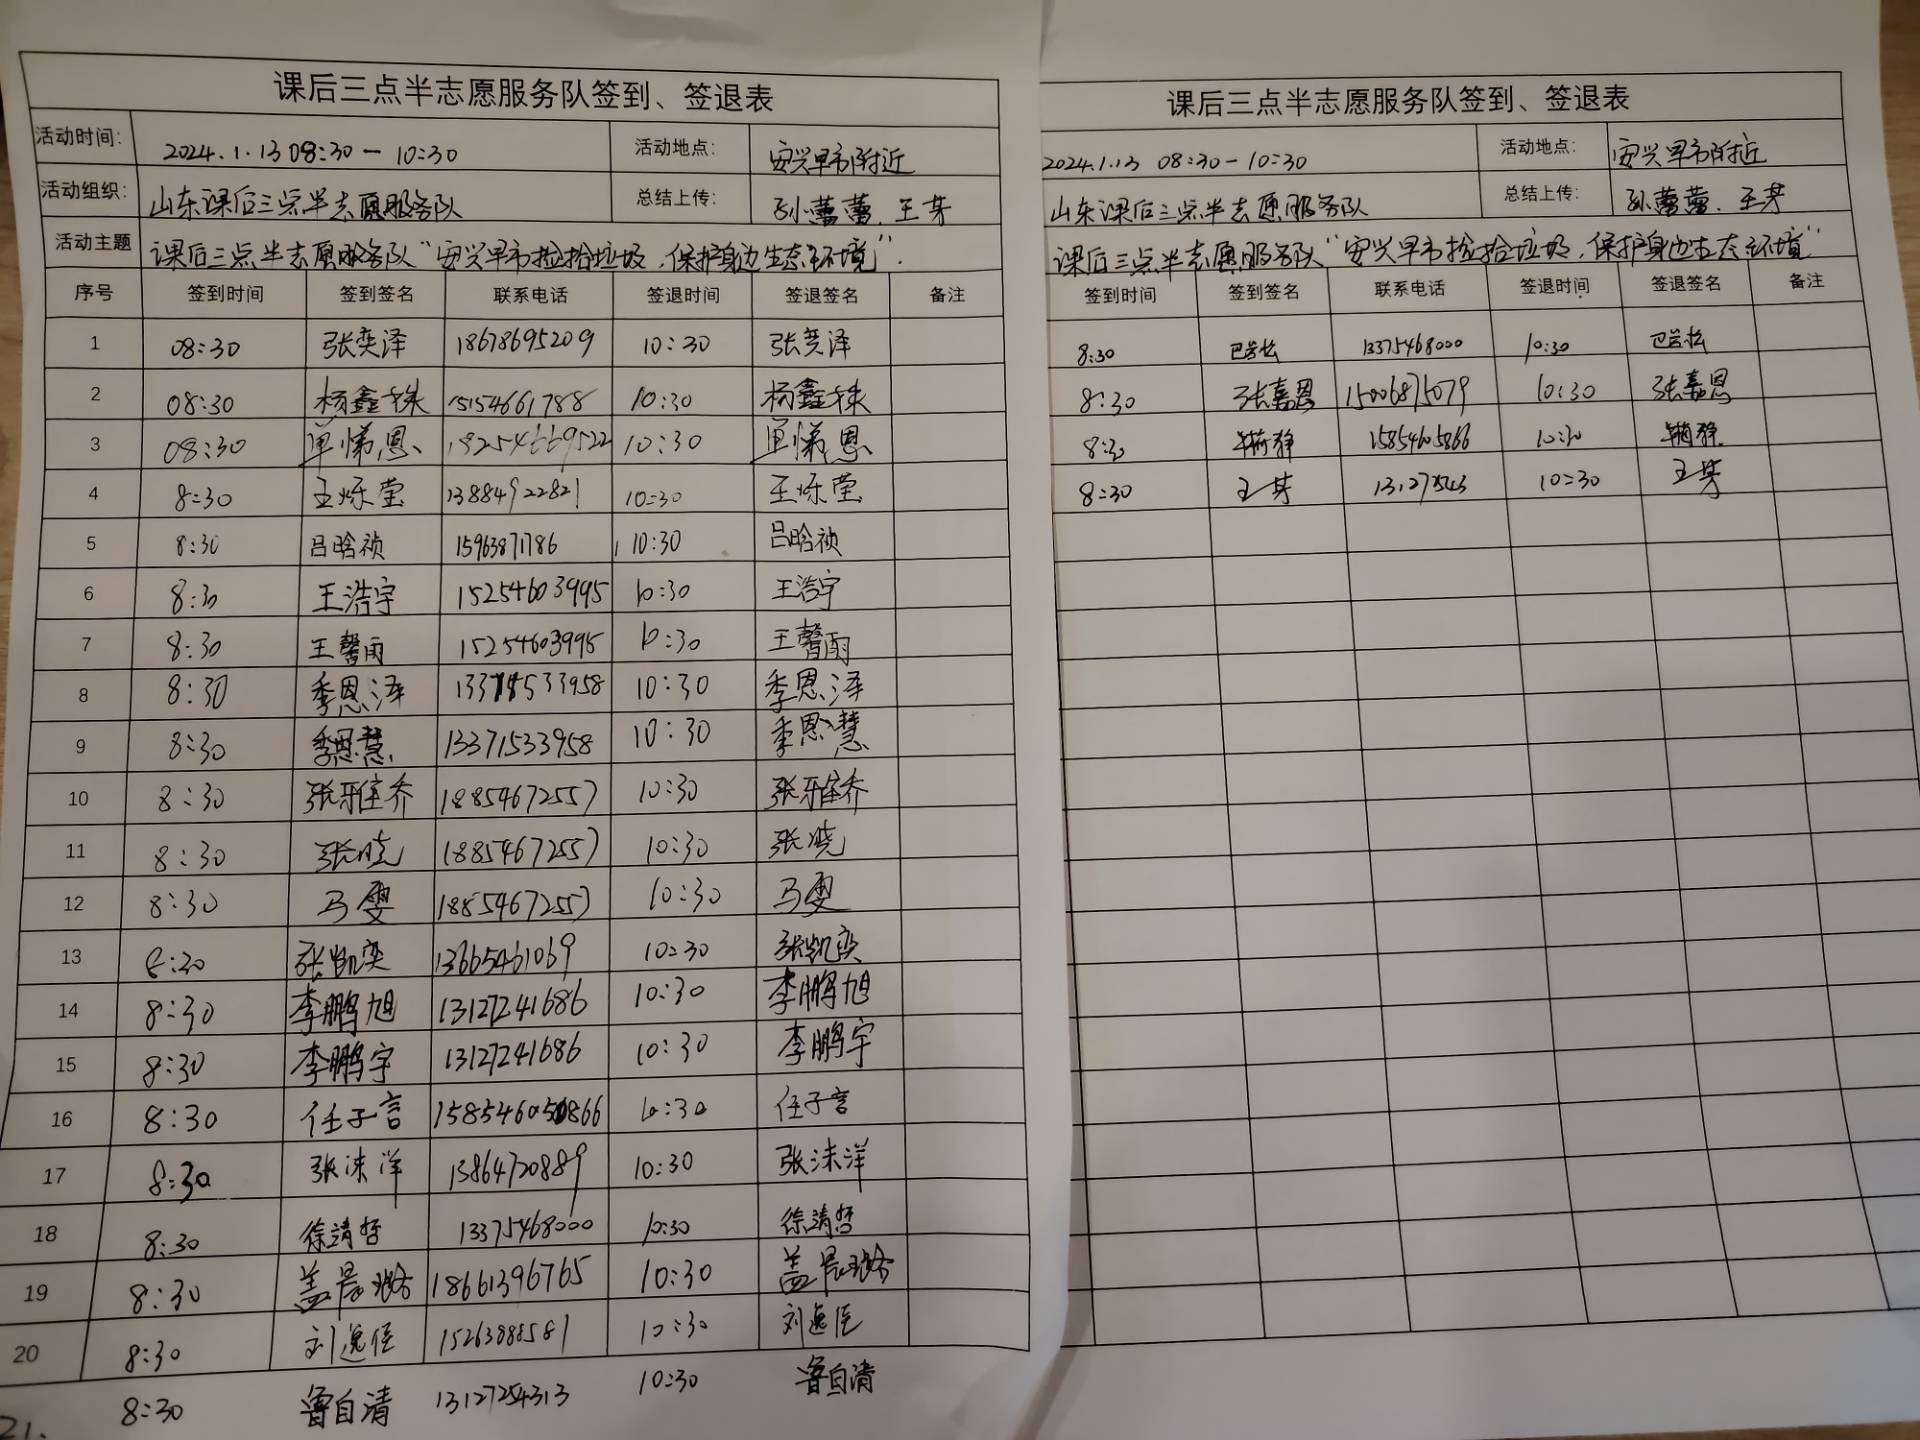 课后三点半志愿服务队签到、签退表
活动时间: 2024.1.13 08:30-10:30 活动地点: 安兴早市附近
活动组织: 山东课后三点半志愿服务队 总结上传: 孙蕾蕾、王芽
活动主题 课后三点半志愿服务队“安兴早市捡拾垃圾,保护身边生态环境”.
序号 签到时间 签到签名 联系电话 签退时间 签退签名 备注
1 08:30 张奕泽 18678695209 10:30 张奕泽
2 08:30 杨鑫铢 15154661788 10:30 杨鑫铢
3 08:30 单悌恩 18254669522 10:30 单悌恩
4 8:30 王烁莹 13884922821 10:30 王烁莹
5 8:30 吕晗祯 15963871786 10:30 吕晗祯
6 8:30 王浩宇 15254603995 10:30 王浩宇
7 8:30 王馨雨 15254603995 10:30 王馨雨
8 8:30 季恩泽 13371533958 10:30 季恩泽
9 8:30 季恩慧 13371533958 10:30 季恩慧
10 8:30 张雅乔 18854672557 10:30 张雅乔
11 8:30 张晓 18854672557 10:30 张晓
12 8:30 马雯 18854672557 10:30 马雯
13 8:30 张凯奕 13665461069 10:30 张凯奕
14 8:30 李鹏旭 13127241686 10:30 李鹏旭
15 8:30 李鹏宇 13127241686 10:30 李鹏宇
16 8:30 任子言 15854605866 10:30 任子言
17 8:30 张沫洋 13864720889 10:30 张沫洋
18 8:30 徐靖哲 13375468000 10:30 徐靖哲
19 8:30 盖晨璐 18661396765 10:30 盖晨璐
20 8:30 刘逸臣 15263888581 10:30 刘逸臣
21. 8:30 鲁自清 13127254313 10:30 鲁自清
课后三点半志愿服务队签到、签退表
2024.1.13 08:30-10:30 活动地点: 安兴早市附近
山东课后三点半志愿服务队 总结上传: 孙蕾蕾、王芽
课后三点半志愿服务队“安兴早市捡拾垃圾,保护身边生态环境”
签到时间 签到签名 联系电话 签退时间 签退签名 备注
8:30 13375468000 10:30
8:30 张嘉恩 15006875079 10:30 张嘉恩
8:30 15854605866 10:30
8:30 王芽 10:30 王芽